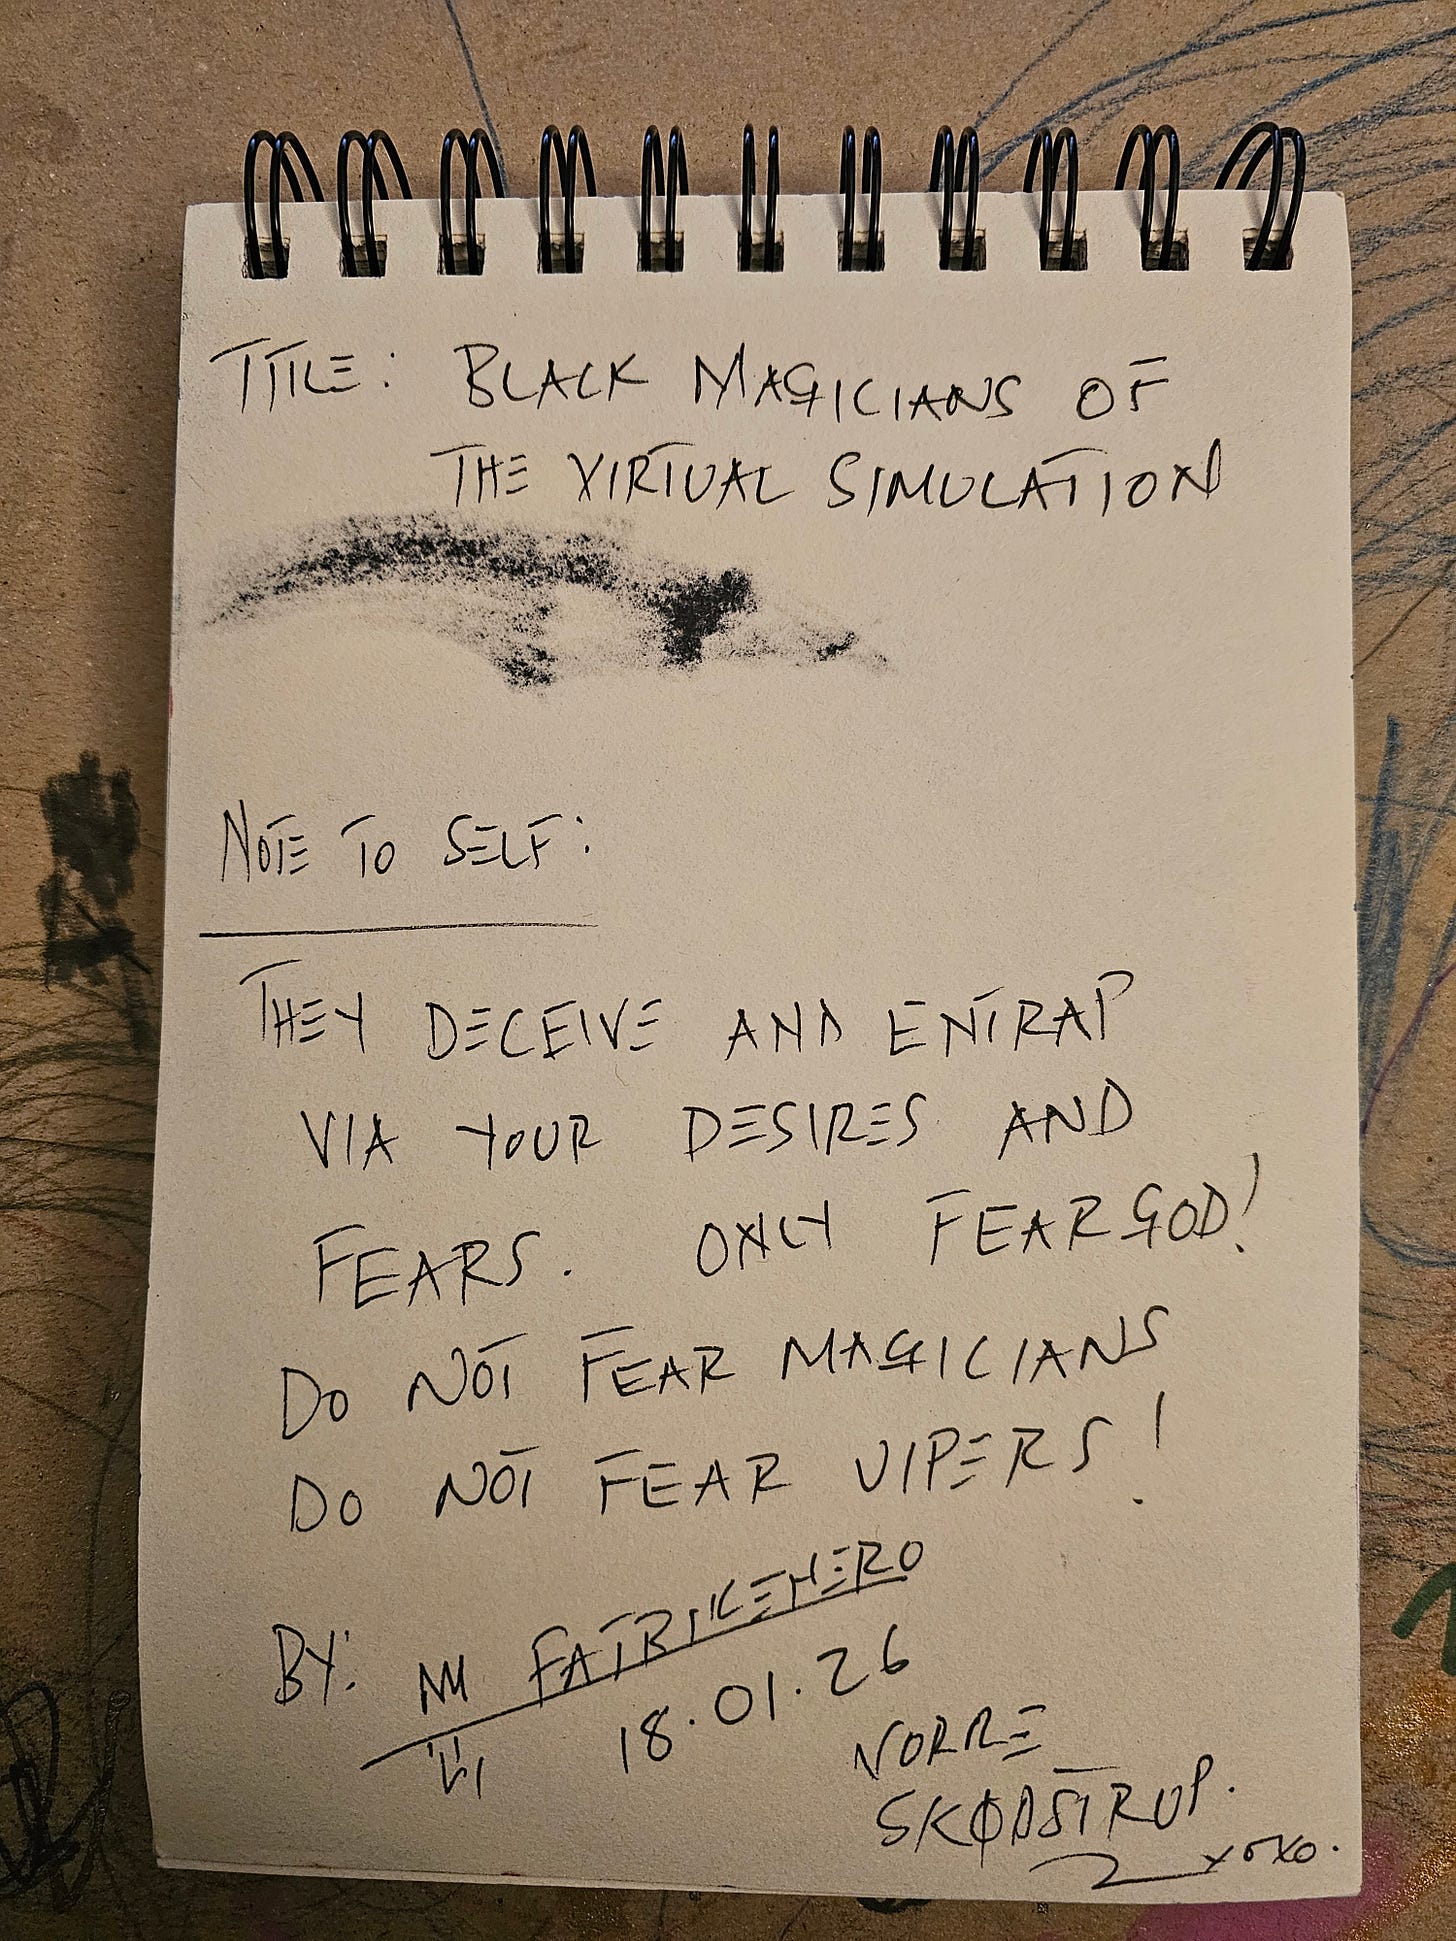 TITLE: BLACK MAGICIANS OF
THE VIRTUAL SIMULATION
NOTE TO SELF:
THEY DECEIVE AND ENTRAP
VIA YOUR DESIRES AND
FEARS. ONLY FEAR GOD!
DO NOT FEAR MAGICIANS
DO NOT FEAR VIPERS!
BY: FATBIKEHERO
18.01.26
NORRE
SKØDSTRUP.
xoxo.